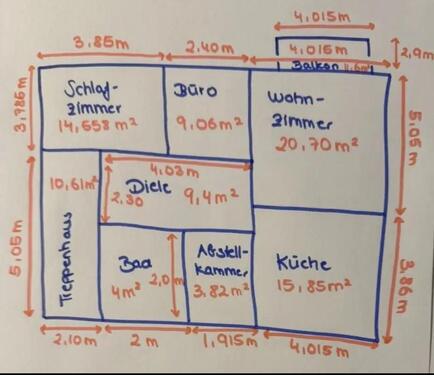 4.015m
3.85m
2.40m
4.015m
2,9m
Balkon
Schlaf-
zimmer
14,558m²
Büro
9,06m²
Wohn-
zimmer
20,70m²
3,786m
5,05m
4.03m
10,61m²
Diele
9,4m²
2,30
5,05m
Treppenhaus
Bad
4m²
2,0m
Abstell-
kammer
3,82m²
Küche
15,85m²
3,86m
2,10m
2m
1,915m
4,015m